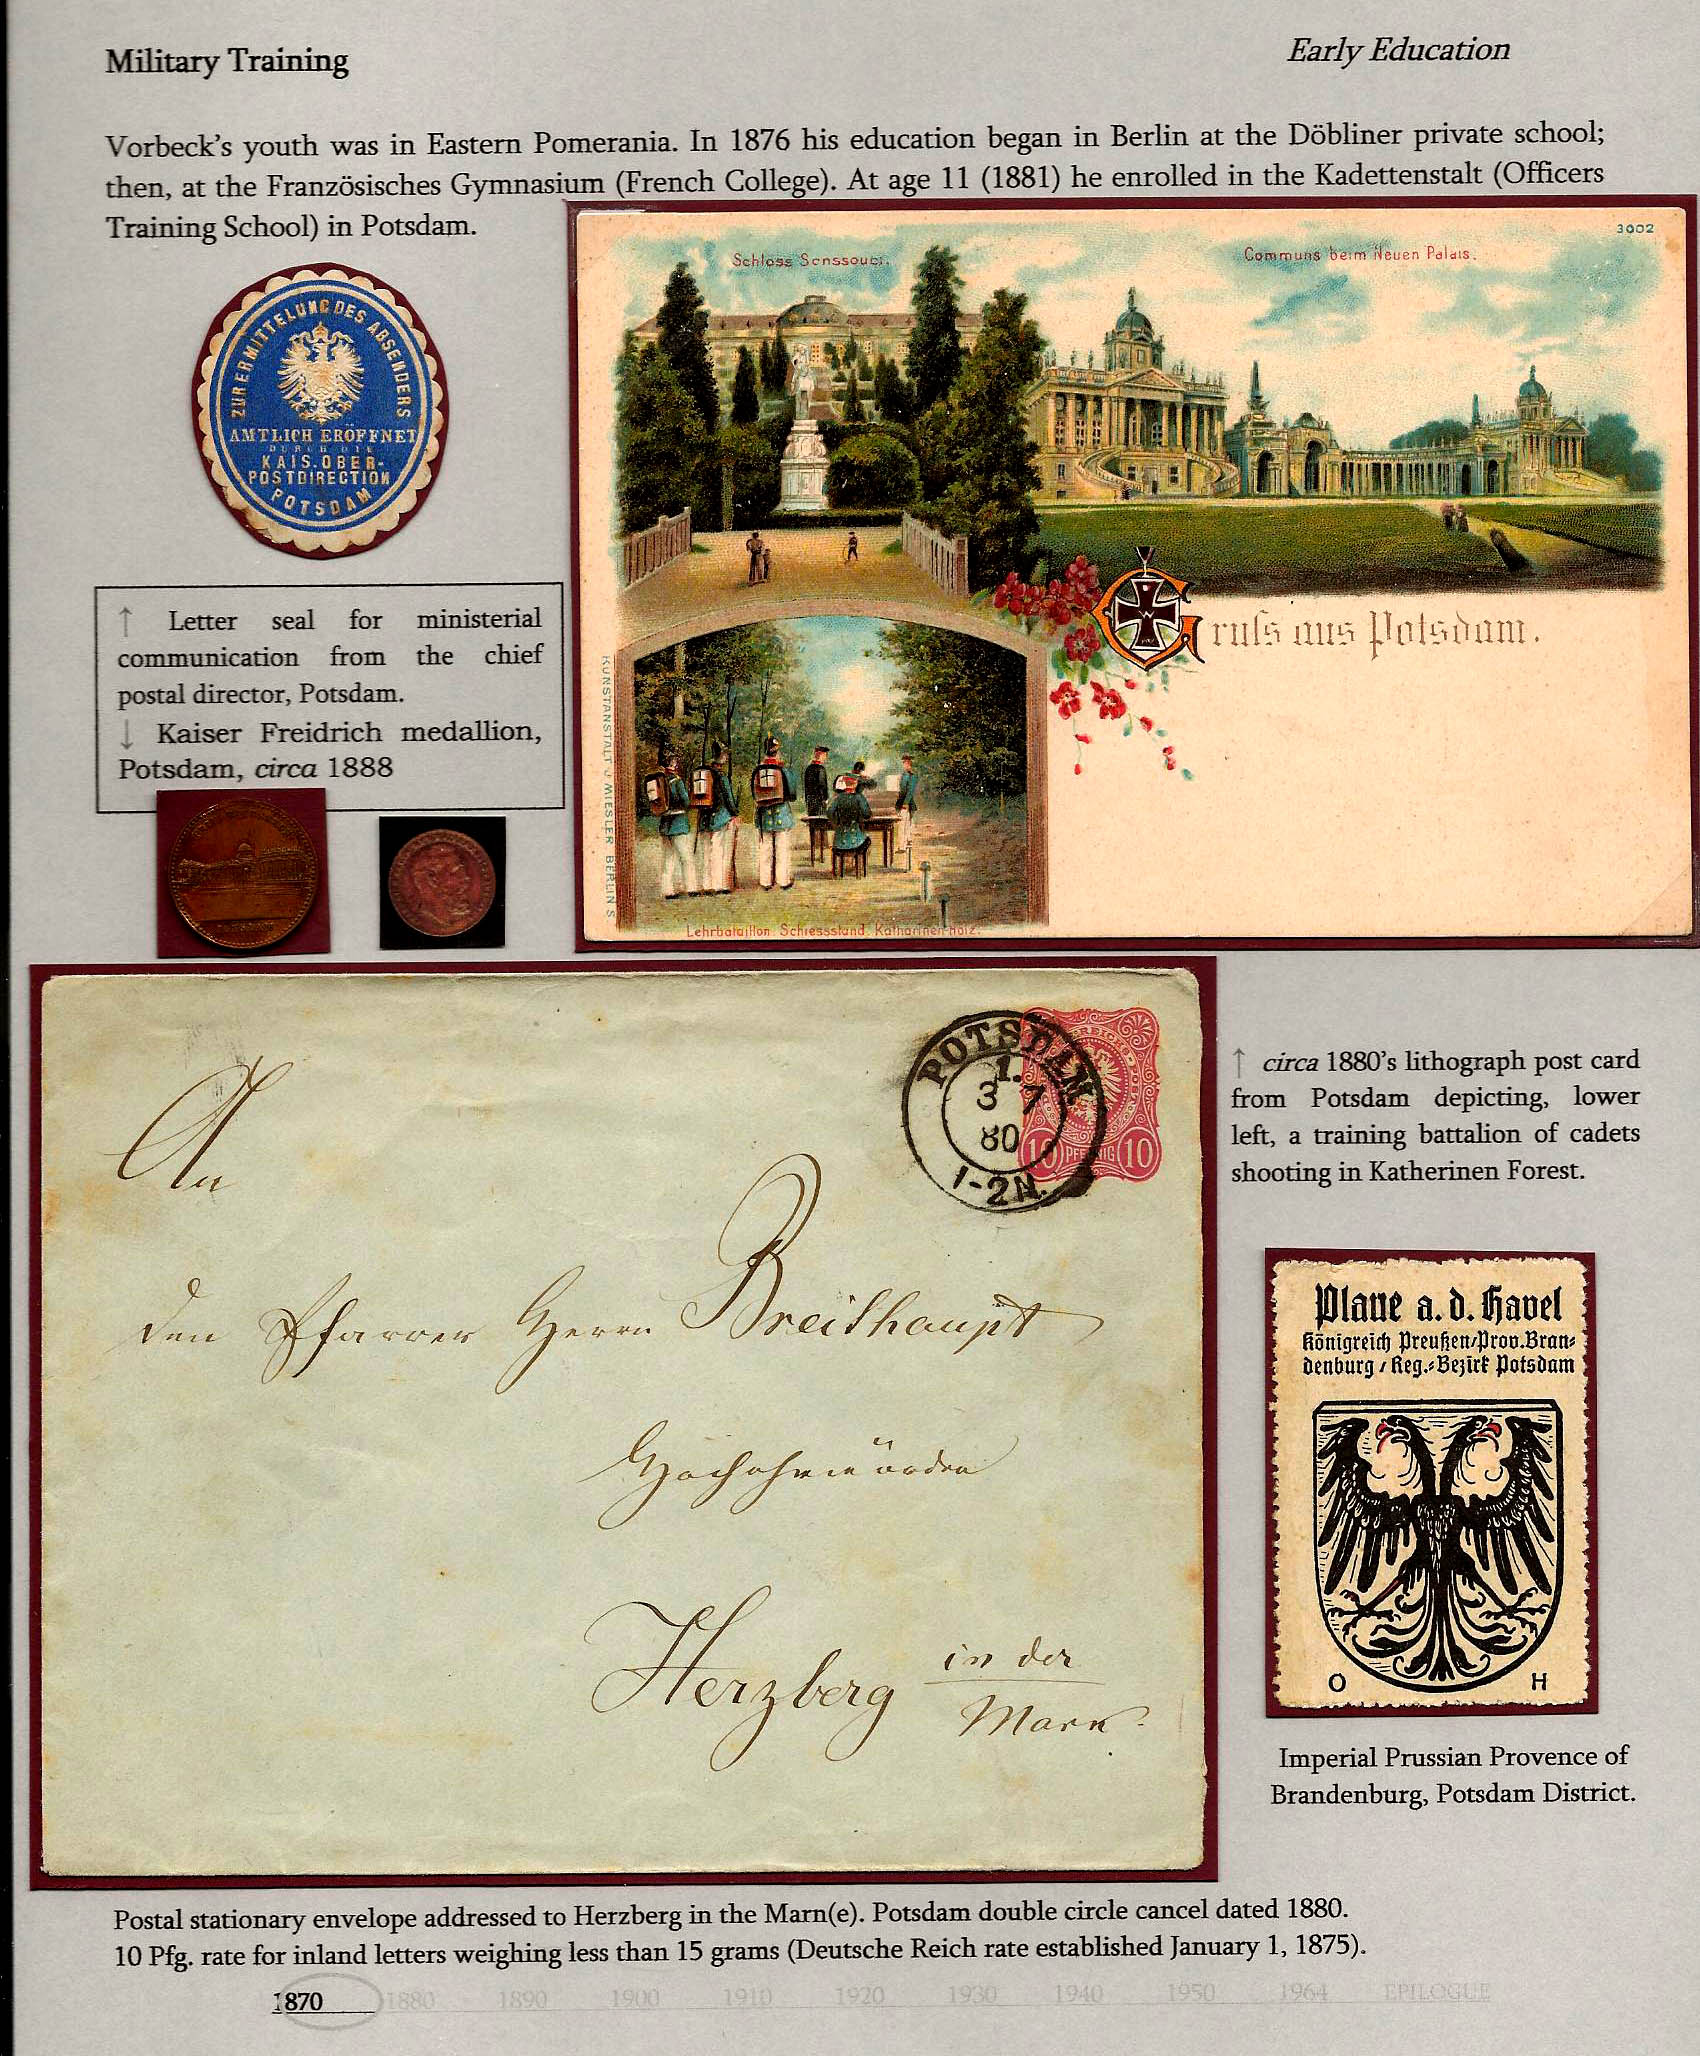 Military Training
Early Education
Vorbeck's youth was in Eastern Pomerania. In 1876 his education began in Berlin at the Döbliner private school;
then, at the Französisches Gymnasium (French College). At age 11 (1881) he enrolled in the Kadettenstalt (Officers
Training School) in Potsdam.
ZUR ERMITTELUNG DES ABSENDERS
AMTLICH ERÖFFNET
DURCH DIE
KAIS. OBER-
POSTDIRECTION
POTSDAM
3002
Schloss Sanssouci.
Communs beim Neuen Palais.
Gruss aus Potsdam.
W
KUNSTANSTALT J. MIESLER BERLIN S.
Lehrbataillon Schiessstand Katharinen-Holz.
↑ Letter seal for ministerial
communication from the chief
postal director, Potsdam.
↓ Kaiser Freidrich medallion,
Potsdam, circa 1888
POTSDAM
1.
3 7
80
1-2N.
10 PFENNIG 10
An
den Pfarrer Herrn Breithaupt
Hochehrwürden
Herzberg in der
Mark.
↑ circa 1880's lithograph post card
from Potsdam depicting, lower
left, a training battalion of cadets
shooting in Katherinen Forest.
Plaue a. d. Havel
Königreich Preußen/Prov. Bran-
denburg / Reg.-Bezirk Potsdam
O H
Imperial Prussian Provence of
Brandenburg, Potsdam District.
Postal stationary envelope addressed to Herzberg in the Marn(e). Potsdam double circle cancel dated 1880.
10 Pfg. rate for inland letters weighing less than 15 grams (Deutsche Reich rate established January 1, 1875).
1870 1880 1890 1900 1910 1920 1930 1940 1950 1964 EPILOGUE